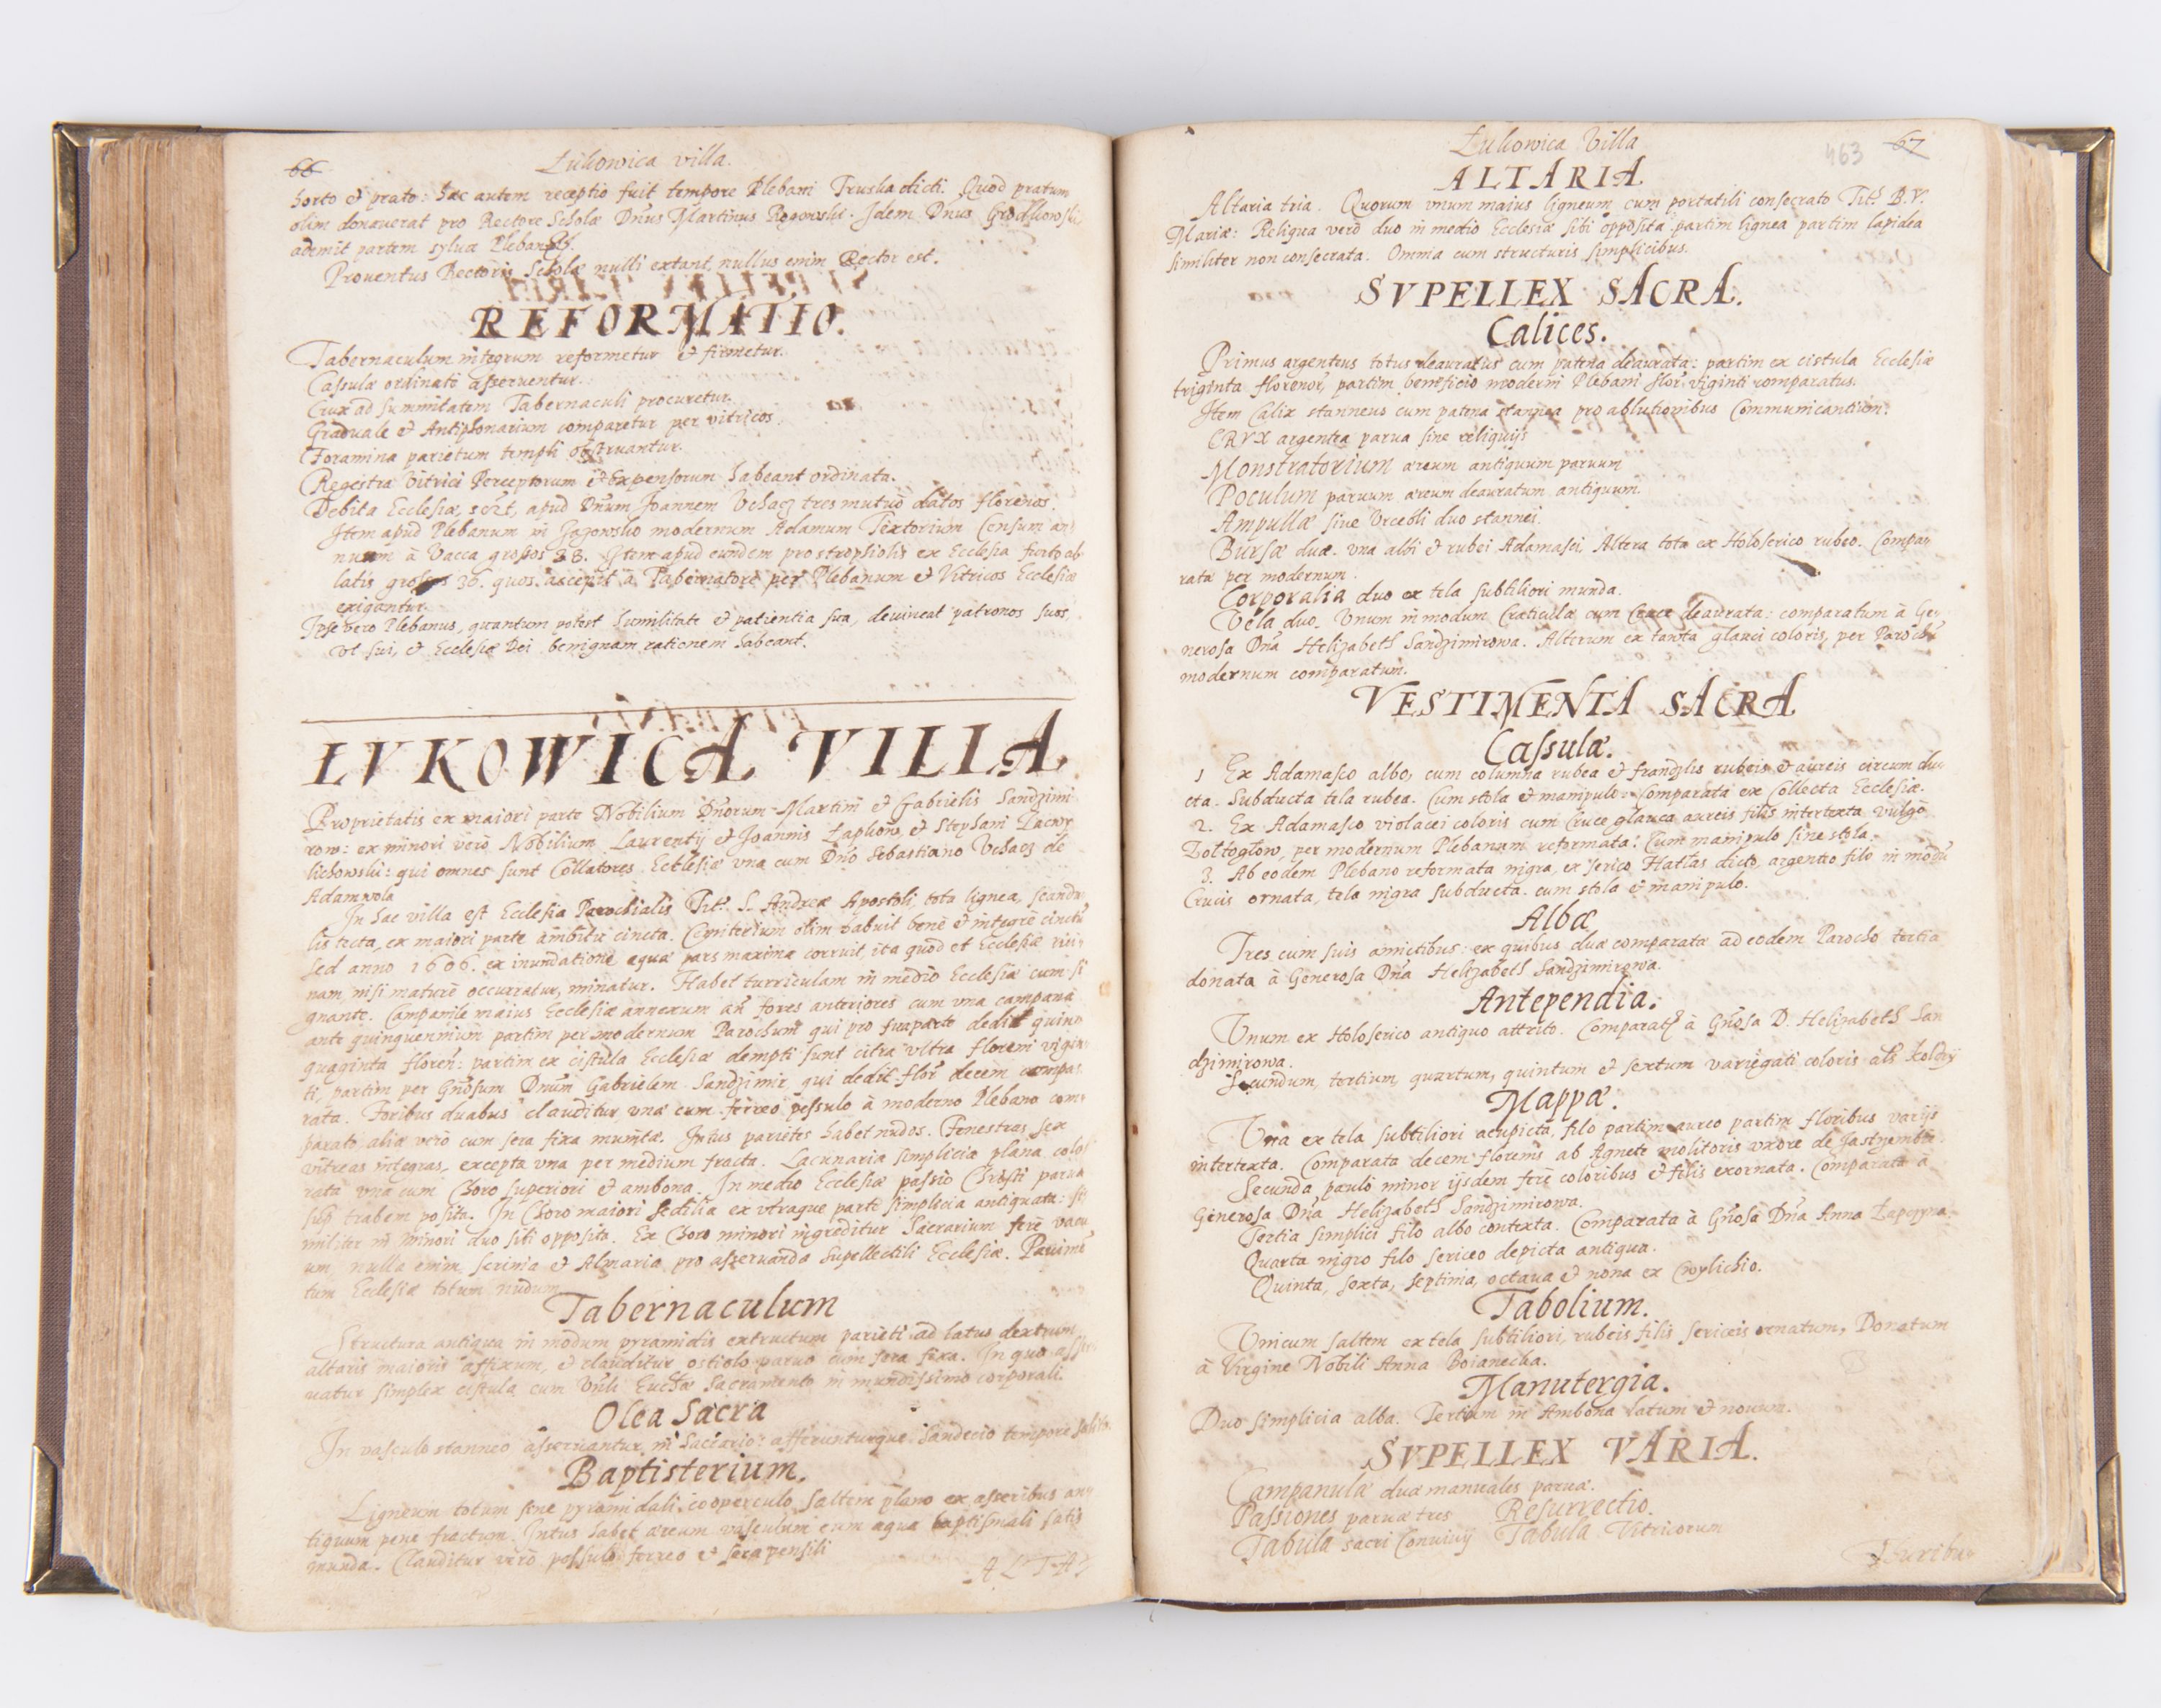 66
Łukowica villa.
horto et prato: hac autem receptio fuit tempore Plebani Truska dicti. Quod pratum
olim donauerat pro Rectore Scholæ Dn̄us Martinus Rogowski. Idem Dn̄us
ademit partem syluæ
Prouentus Rectoris Scholæ nulli extant, nullus enim Rector est.
REFORMATIO.
Tabernaculum integrum reformetur et firmetur.
Casulæ ordinatè asseruentur.
Crux ad summitatem Tabernaculi procuretur.
Graduale et Antiphonarium comparetur per vitricos.
Foramina parietum templi obstruantur.
Regestra Vitrici Perceptorum et Expensorum habeant ordinata.
Debita Ecclesiæ, apud Dn̄um Joannem Vchacz tres mutuò datos florenos.
Item apud Plebanum in modernum Adamum Textorium Censum an-
nuum à Vacca grossos 38. Item apud eundem pro ex Ecclesia furto ab-
latis grossos 36. quos accepit à Tabernatore per Plebanum et Vitricos Ecclesiæ
exigantur.
Ipse vero Plebanus, quantum potest humilitate et patientia sua, deuincat patronos suos,
vt sui, et Ecclesiæ Dei benignam rationem habeant.
LVKOWICA VILLA
Proprietatis ex maiori parte Nobilium Dn̄orum Martini et Gabrielis Sandzimi-
row: ex minori verò Nobilium Laurentij et Joannis et Stephani
qui omnes sunt Collatores Ecclesiæ vna cum Dn̄o Sebastiano Vchacz de
Adamwola
In hac villa est Ecclesia Parochialis Tit: S. Andreæ Apostoli, tota lignea, scandu-
lis tecta, ex maiori parte ambitu cincta. Cœmiterium olim habuit benè et integrè cinctu
sed anno 1606. ex inundatione aquæ pars maxima corruit, ita quod et Ecclesiæ rui-
nam, nisi maturè occurratur, minatur. Habet turriculam in medio Ecclesiæ cum si-
gnante. Campanile maius Ecclesiæ annexum an̄ fores anteriores cum vna campana
ante quinquennium partim per modernum Parochum qui pro sua parte dedit quin-
quaginta floren̄: partim ex cistula Ecclesiæ dempti sunt citra vltra floreni vigin-
ti, partim per Gn̄osum Dn̄um Gabrielem Sandzimir, qui dedit flor̄ decem compa-
rata. Foribus duabus clauditur vna cum ferreo pessulo à moderno Plebano com-
parato, aliæ verò cum sera fixa munitæ. Intus parietes habet nudos. Fenestras sex
vitreas integras, excepta vna per medium fracta. Lacunaria simplicia plana colo-
rata vna cum Choro superiori et ambona. In medio Ecclesiæ passio Christi parua
sup̄ trabem posita. In Choro maiori sedilia ex vtraque parte simplicia antiquata: si-
militer in minori duo sibi opposita. Ex Choro minori ingreditur Sacrarium ferè vacu-
um, nulla enim scrinia et Almaria pro asseruanda supellectili Ecclesiæ. Pauimē
tum Ecclesiæ totum nudum
Tabernaculum
Structura antiqua in modum pyramidis extructum parieti ad latus dextrum
altaris maioris affixum, et clauditur ostiolo paruo cum sera fixa. In quo asser-
uatur simplex cistula cum Sacramento in mundissimo corporali.
Olea Sacra
In vasculo stanneo asseruantur in Sacrario: afferunturque Sandecio tempore
Baptisterium.
Ligneum totum sine pyramidali cooperculo, saltem plano ex asseribus an-
tiquum pene fractum. Intus habet æreum vasculum cum aqua baptismali satis
munda. Clauditur verò pessulo ferreo et sera pensili
ALTA
Łukowica Villa
463
67
ALTARIA
Altaria tria. Quorum vnum maius ligneum cum portatili consecrato Tit: B.V.
Mariæ: Reliqua verò duo in medio Ecclesiæ sibi opposita partim lignea partim lapidea
similiter non consecrata. Omnia cum structuris simplicibus.
SVPELLEX SACRA.
Calices.
Primus argenteus totus deauratus cum patena deaurata: partim ex cistula Ecclesiæ
triginta florenor, partim beneficio moderni Plebani flor̄ viginti comparatus.
Item Calix stanneus cum patena stannea pro ablutionibus Communicantium.
CRVX argentea parua sine reliquijs
Monstratorium æreum antiquum paruum
Poculum paruum æreum deauratum antiquum.
Ampullæ siue Vrceoli duo stannei.
Bursæ duæ. vna albi et rubei Adamasci, Altera tota ex Holoserico rubeo. Compa-
rata per modernum.
Corporalia duo ex tela subtiliori munda.
Vela duo. Vnum in modum Craticulæ cum Cruce deaurata: comparatum à Ge-
nerosa Dn̄a Helizabeth Sandzimirowa. Alterum ex glauci coloris, per Parochū
modernum comparatum.
VESTIMENTA SACRA
Casulæ.
1 Ex Adamasco albo, cum columna rubea et frandzlis rubeis et aureis circumdu-
cta. Subducta tela rubea. Cum stola et manipulo. Comparata ex Collecta Ecclesiæ.
2. Ex Adamasco violacei coloris cum Cruce glauca aureis filis intertexta vulgo
per modernum Plebanum reformata: Cum manipulo sine stola.
3. Ab eodem Plebano reformata nigra, ex serico Hatłas dicto, argenteo filo in modū
Crucis ornata, tela nigra subducta. cum stola et manipulo.
Albæ
Tres cum suis amictibus: ex quibus duæ comparatæ ad eodem Parocho tertia
donata à Generosa Dn̄a Helizabeth Sandzimirowa.
Antependia.
Vnum ex Holoserico antiquo attrito. Comparatū à Gn̄osa D. Helizabeth San-
dzimirowa.
Secundum, tertium, quartum, quintum et sextum variegati coloris
Mappæ.
Vna ex tela subtiliori acupicta, filo partim aureo partim floribus varijs
intertexta. Comparata decem florenis ab Agnete molitoris vxore de
Secunda paulò minor ijsdem ferè coloribus et filis exornata. Comparata à
Generosa Dn̄a Helizabeth Sandzimirowa.
Tertia simplici filo albo contexta. Comparata à Gn̄osa Dn̄a Anna
Quarta nigro filo sericeo depicta antiqua.
Quinta, sexta, septima, octaua et nona ex Cwylichio.
Tabolium.
Vnicum saltem ex tela subtiliori, rubeis filis sericeis ornatum, Donatum
à Virgine Nobili Anna Boianecka.
Manutergia.
Duo simplicia alba. Tertium in Ambona latum et nouum.
SVPELLEX VARIA.
Campanulæ duæ manuales paruæ.
Passiones paruæ tres Resurrectio.
Tabula sacri Conuiuij Tabula Vitricorum
Thuribu-